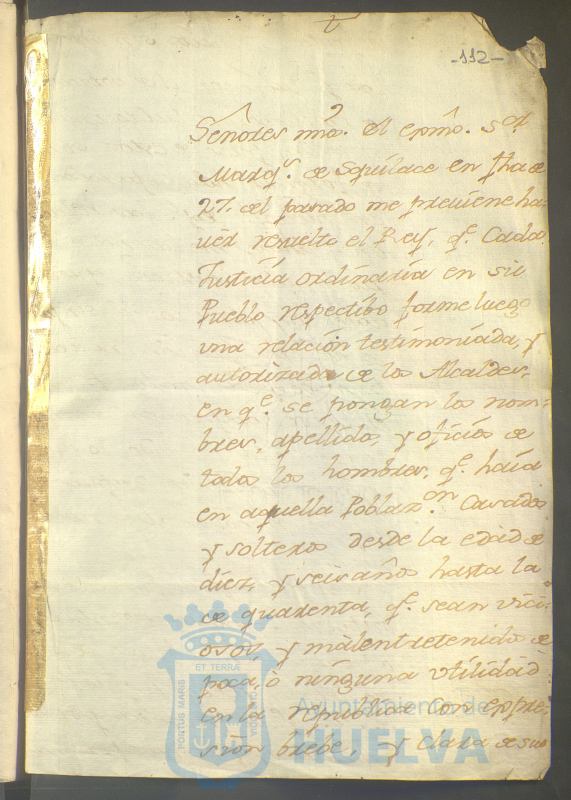 -112-
Señores mios. el exmo. Sor.
Marqs. de Squilace en fha de
27. del pasado me previene ha-
ver resuelto el Rey, qe. Cada
Justicia ordinaria en su
Pueblo respectibo forme luego
una relacion testimoniada, y
autorizada de los Alcaldes,
en qe. se pongan los nom-
bres, apellido, y oficios de
todos los hombres, qe. haia
en aquella Poblazon. Casados
y solteros desde la edad de
diez, y seis años hasta la
de quarenta, qe. sean vici-
osos, y malentretenidos de
poca, o ninguna utilidad
en la republica con expre-
sion brebe, y clara de sus
ET TERRÆ
PORTUS MARIS
Ayuntamiento de
HUELVA